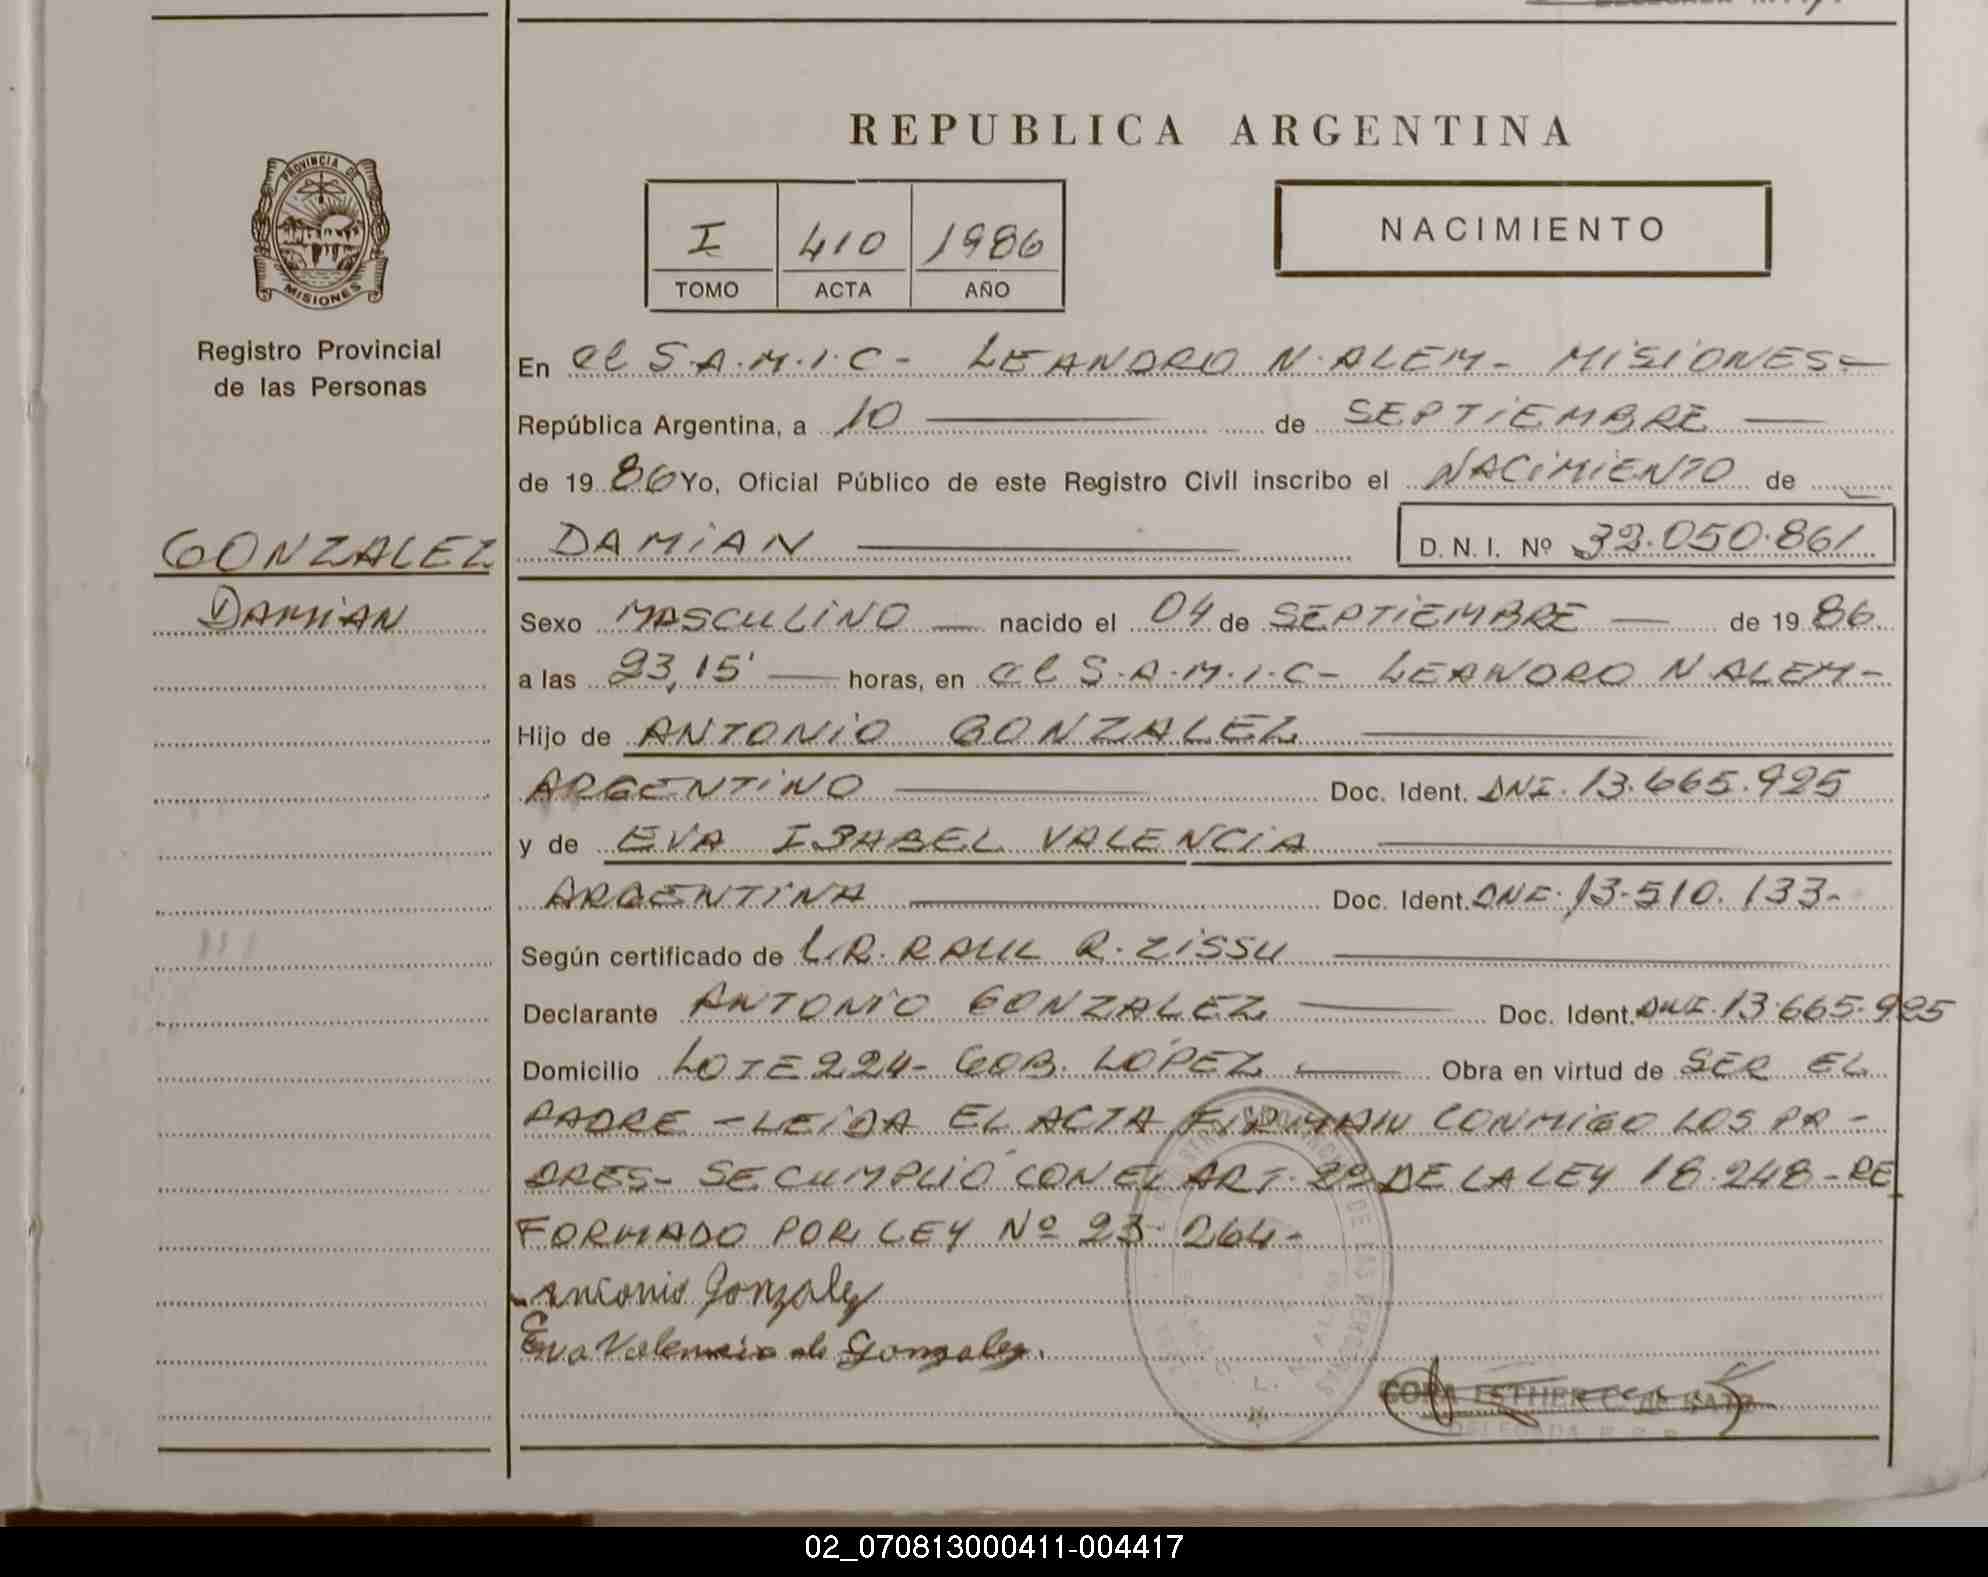 REPUBLICA ARGENTINA
PROVINCIA DE
MISIONES
Registro Provincial
de las Personas
I 410 1986
TOMO ACTA AÑO
NACIMIENTO
En el S.A.M.I.C- LEANDRO N. ALEM- MISIONES-
República Argentina, a 10 de SEPTIEMBRE
de 1986 Yo, Oficial Público de este Registro Civil inscribo el NACIMIENTO de
DAMIAN D.N.I. Nº 32.050.861
GONZALEZ
DAMIAN
Sexo MASCULINO nacido el 04 de SEPTIEMBRE de 1986
a las 23,15' horas, en el S.A.M.I.C- LEANDRO N ALEM-
Hijo de ANTONIO GONZALEZ
ARGENTINO Doc. Ident. DNI. 13.665.925
y de EVA ISABEL VALENCIA
ARGENTINA Doc. Ident. DNI. 13.510.133-
Según certificado de RAUL R. ZISSU
Declarante ANTONIO GONZALEZ Doc. Ident. DNI. 13.665.925
Domicilio LOTE 224- GOB. LOPEZ Obra en virtud de SER EL
PADRE - LEIDA EL ACTA FIRMAN CONMIGO LOS PA-
DRES- SE CUMPLIO CON EL ART. 2º DE LA LEY 18.248-RE
FORMADO POR LEY Nº 23.264-
Antonio Gonzalez
Eva Valencia de Gonzalez.
ESTHER C. DE
DELEGADA
02_070813000411-004417